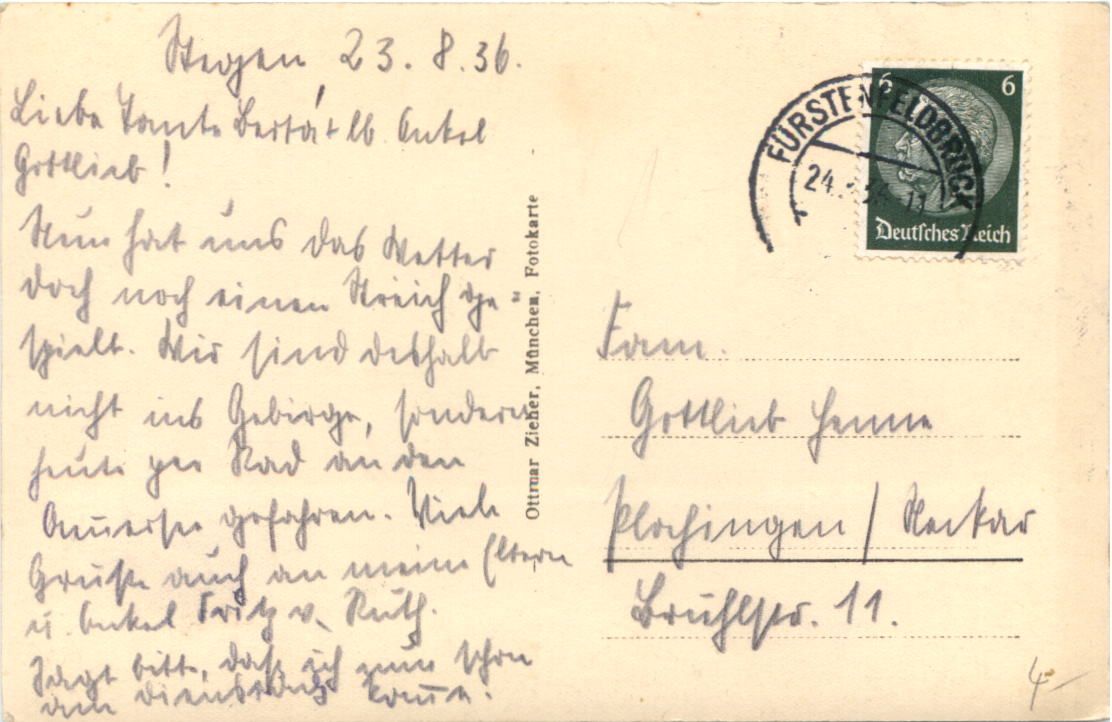 Stegen 23.8.36.
Liebe Tante Berta + lb. Onkel
Gottlieb!
Nun hat uns das Wetter
doch noch einen Streich ge-
spielt. Wir sind deshalb
nicht ins Gebirge, sondern
heute per Rad an den
Ammersee gefahren. Viele
Grüße auch an meine Eltern
u. Onkel Fritz v. Ruth.
Sagt bitte, daß ich nun schon
am Dienstag komme.
Ottmar Zieher, München, Fotokarte
FÜRSTENFELDBRUCK
24. 36. 11
6 6
Deutsches Reich
Fam.
Gottlieb Henne
Plochingen / Neckar
Brühlstr. 11.
4.-